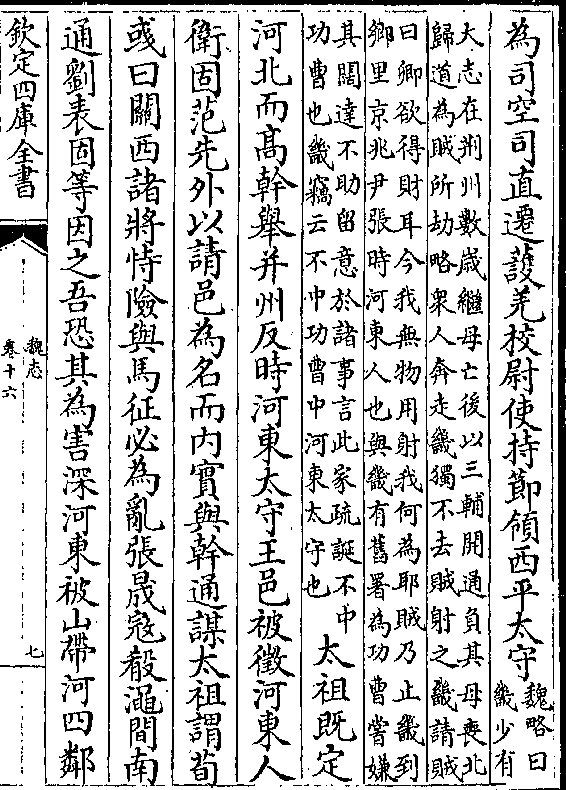 為司空司直遷護羌校尉使持節領西平太守
魏略曰
畿少有
大志在荆州數歳繼母亡後以三輔開通負其母喪北
歸道為賊所劫略衆人奔走畿獨不去賊射之畿請賊
曰卿欲得財耳今我無物用射我何為耶賊乃止畿到
鄉里京兆尹張時河東人也與畿有舊署為功曹嘗嫌
其闊達不助留意於諸事言此家疏誕不中
功曹也畿竊云不中功曹中河東太守也
太祖既定
河北而髙幹舉并州反時河東太守王邑被徵河東人
衛固范先外以請邑為名而内實與幹通謀太祖謂荀
彧曰關西諸將恃險與馬征必為亂張晟寇殽澠間南
通劉表固等因之吾恐其為害深河東被山帶河四鄰
欽定四庫全書
魏志
卷十六
七